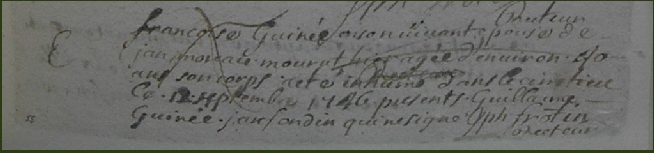 Recteur
françoise Guinée en son vivant epouse de
jan moraie mourut hier agée d'environ 40
ans son corps a eté inhumé dans le cimetiere
Ce 12 septembre 1746 presents Guillaume
Guinée jan fondin qui ne signe Jph frotin
Recteur